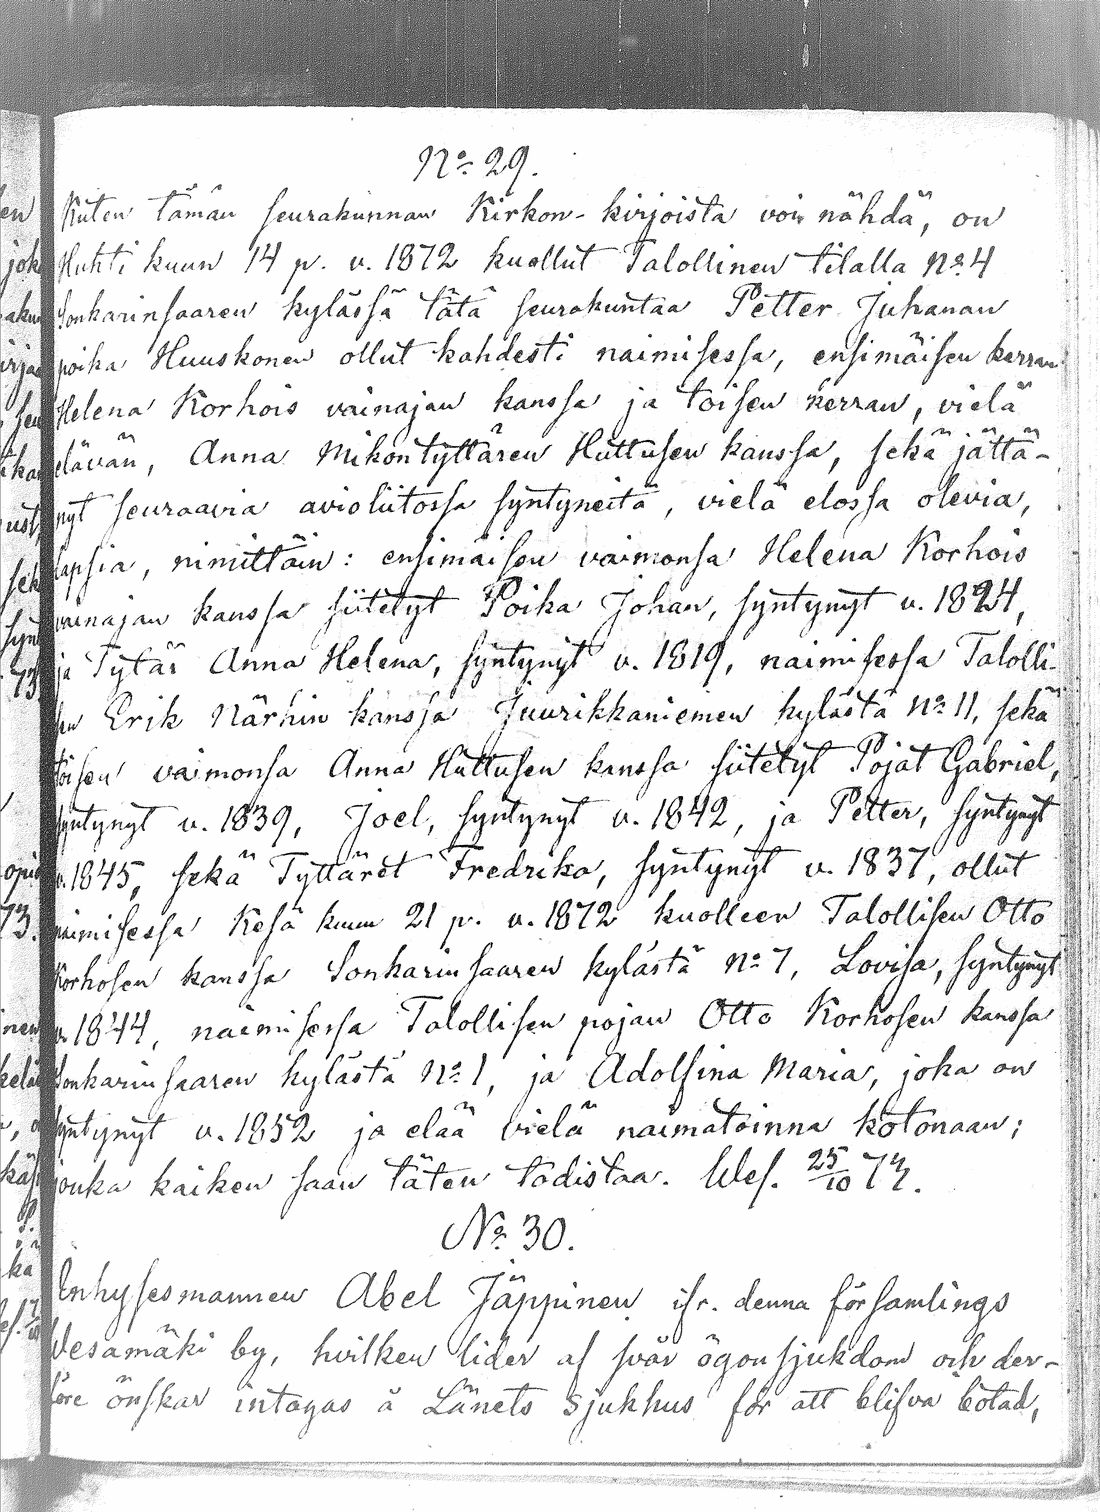 No 29.
Kuten tämän seurakunnan Kirkon-kirjoista voi nähdä, on
Huhti kuun 14 p. v. 1872 kuollut Talollinen tilalla No 4
Sonkarinsaaren kylässä tätä seurakuntaa Petter Juhanan
poika Huuskonen ollut kahdesti naimisessa, ensimäisen kerran
Helena Korhois vainajan kanssa ja toisen kerran, vielä
elävän, Anna Mikontyttären Huttusen kanssa, sekä jättä-
nyt seuraavia avioliitossa syntyneitä, vielä elossa olevia,
lapsia, nimittäin: ensimäisen vaimonsa Helena Korhois
vainajan kanssa siitetyt Poika Johan, syntynyt v. 1824,
ja Tytär Anna Helena, syntynyt v. 1819, naimisessa Talolli-
sen Erik Närhin kanssa Juurikkaniemen kylästä No 11, sekä
toisen vaimonsa Anna Huttusen kanssa siitetyt Pojat Gabriel,
syntynyt v. 1839, Joel, syntynyt v. 1842, ja Petter, syntynyt
v. 1845, sekä Tyttäret Fredrika, syntynyt v. 1837, ollut
naimisessa Kesä kuun 21 p. v. 1872 kuolleen Talollisen Otto
Korhosen kanssa Sonkarinsaaren kylästä No 7, Lovisa, syntynyt
v. 1844, naimisessa Talollisen pojan Otto Korhosen kanssa
Sonkarinsaaren kylästä No 1, ja Adolfina Maria, joka on
syntynyt v. 1852 ja elää vielä naimatoinna kotonaan;
jonka kaiken saan täten todistaa. Wes. 25/10 73.
No 30.
Inhysesmannen Abel Jäppinen ifr. denna församlings
Vesamäki by, hvilken lider af svår ögonsjukdom och der-
före önskar intagas å Länets Sjukhus för att blifva botad,